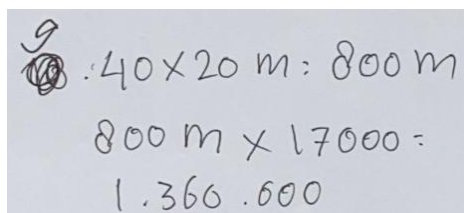 9
.40 x 20 m = 800 m
800 m x 17000 =
1.360.000